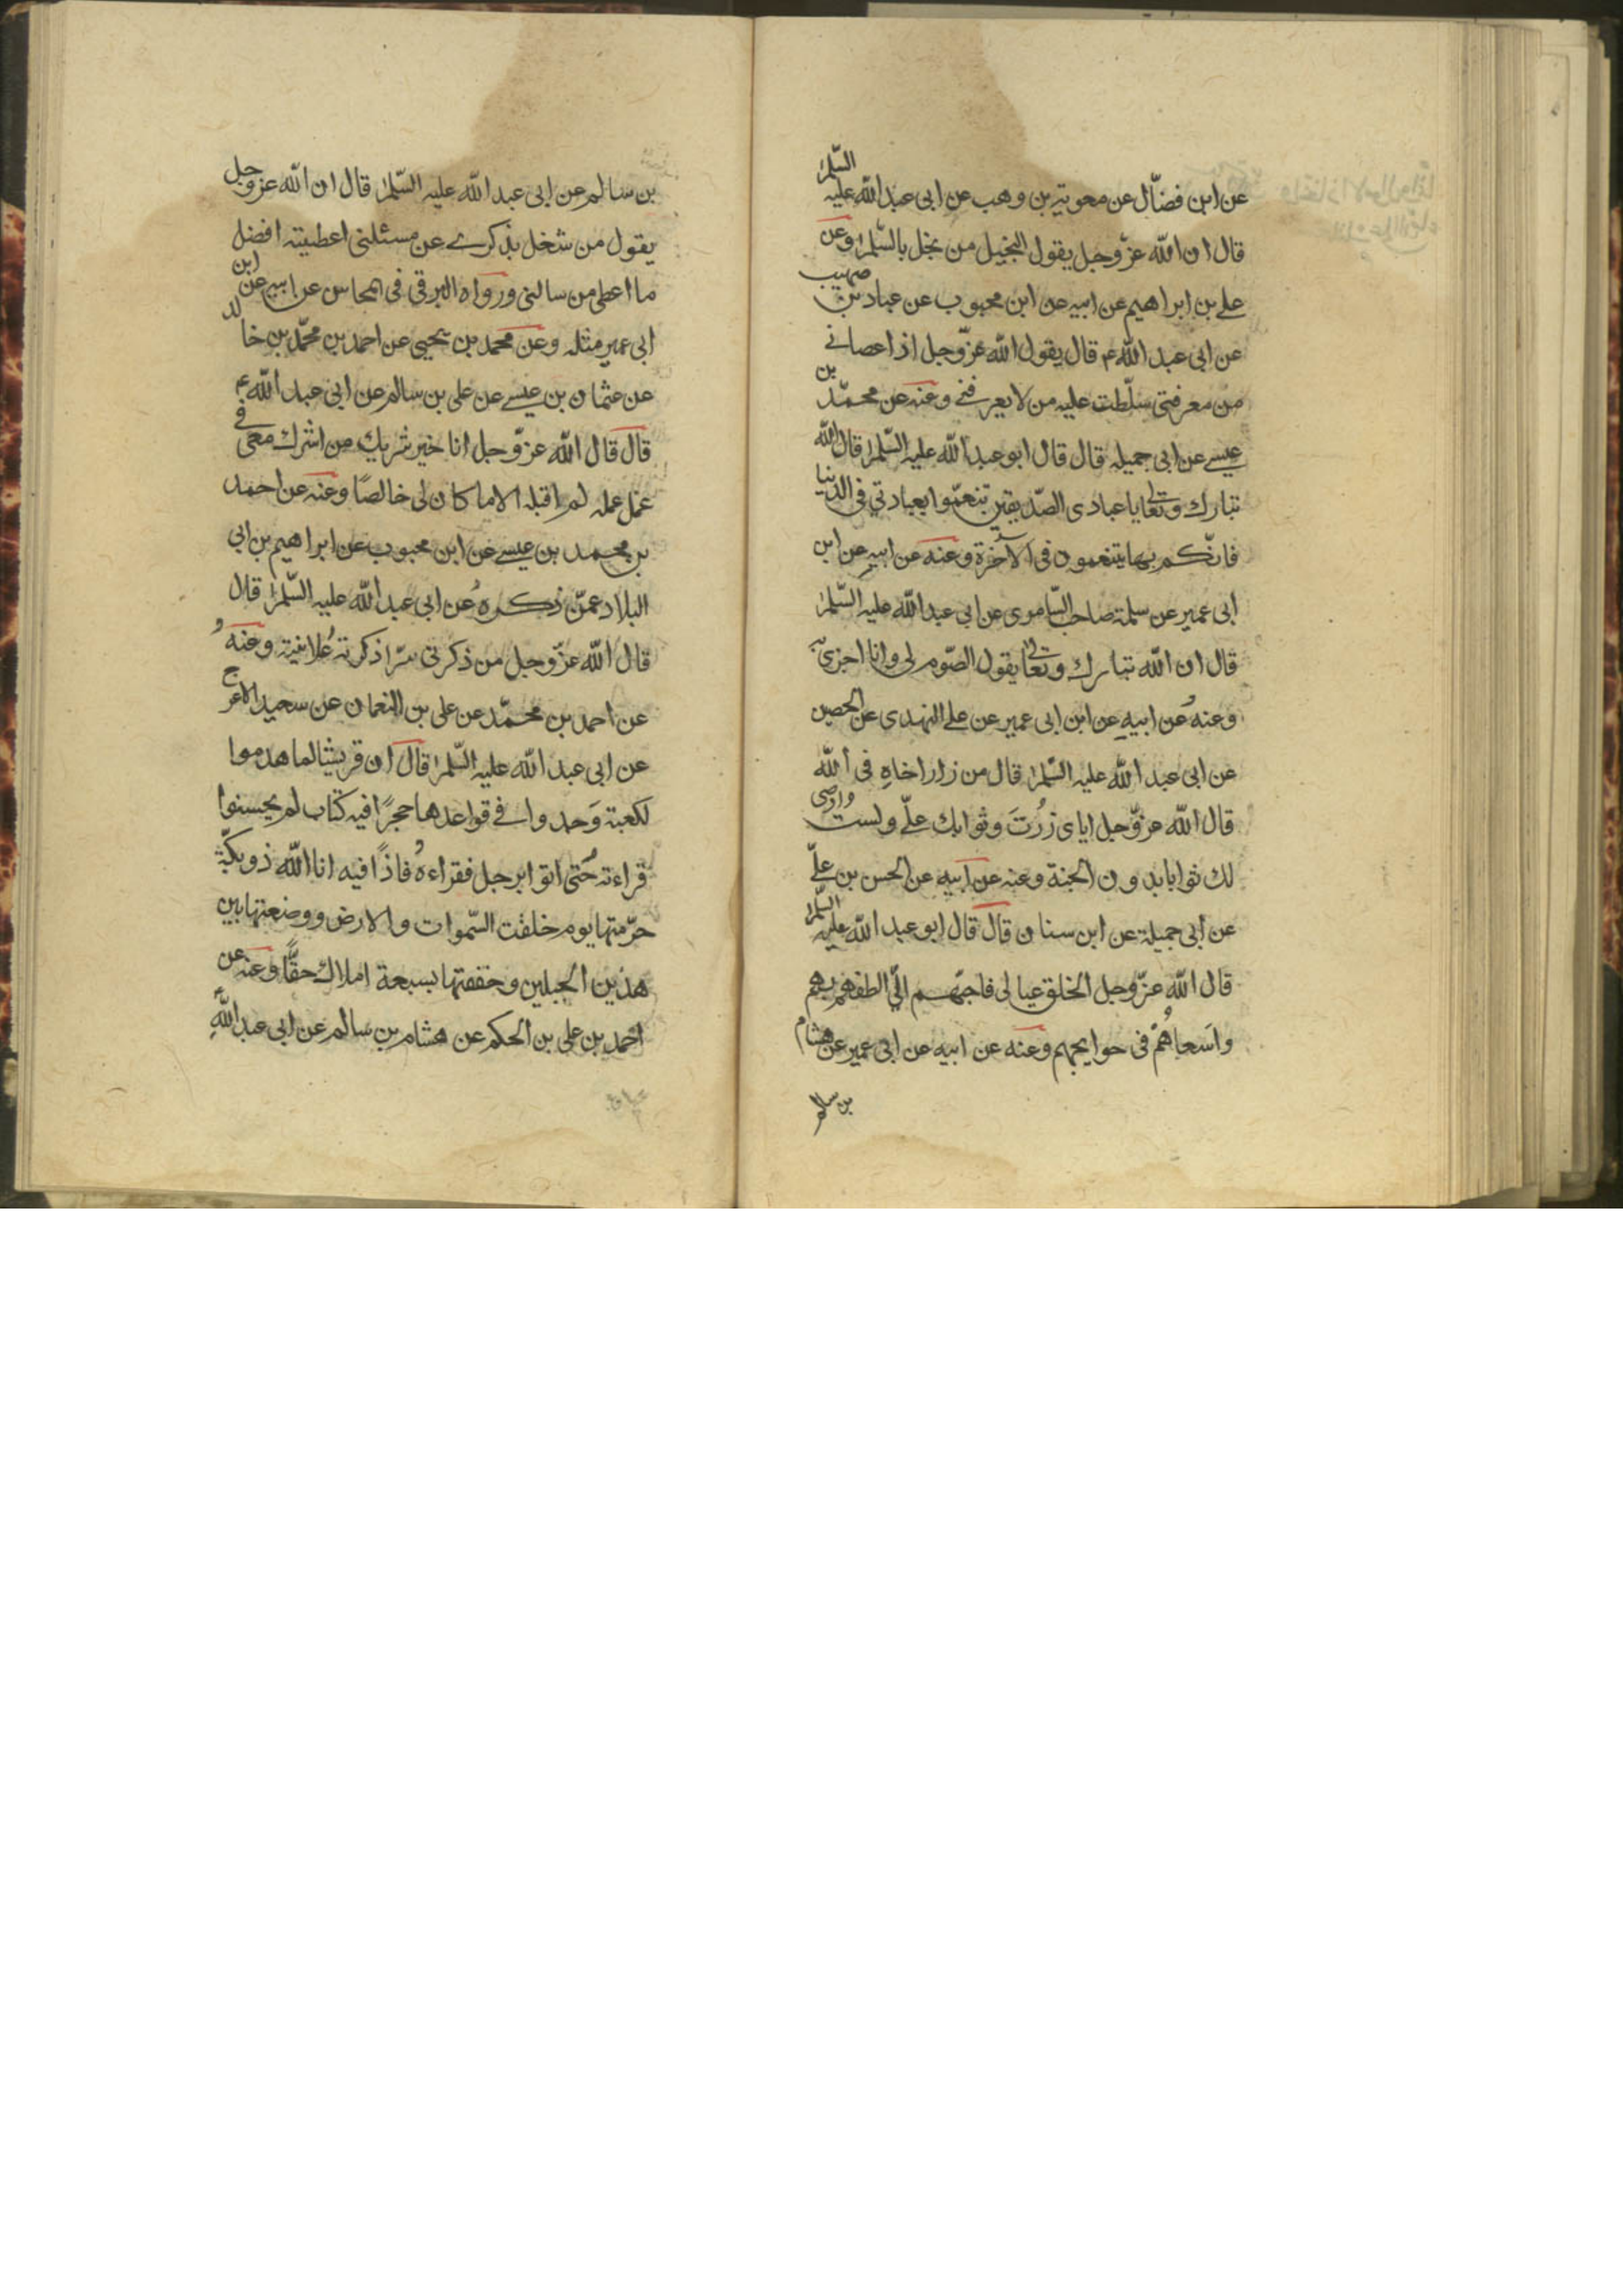 عن ابن فضّال عن معوية بن وهب عن ابى عبد الله عليه السّلم
قال ان الله عزّ وجل يقول البخيل من بخل بالسّلم وعن
علے بن ابراهيم عن ابيه عن ابن محبوب عن عباد بن صهيب
عن ابى عبد الله ع قال يقول الله عزّ وجل اذا عصانے
من معرفتى سلّطت عليه من لا يعرفنے وعنه عن محمّد بن
عيسے عن ابى جميله قال قال ابو عبد الله عليه السّلم قال الله
تبارك وتعالى يا عبادى الصّديقين تنعمّوا بعبادتي فى الدّنيا
فانّكم بها يتنعمون فى الآخرة وعنه عن ابيه عن ابن
ابى عمير عن سلمة صاحب السّاموى عن ابى عبد الله عليه السّلم
قال ان الله تبارك وتعالى يقول الصّوم لى وانا اجزى به
وعنه عن ابيه عن ابن ابى عمير عن علے النهدى عن الحصين
عن ابى عبد الله عليه السّلم قال من زار اخاه فى الله
قال الله عزّ وجل اياى زُرتَ وثوابك علىّ ولست وارضى
لك ثوابا بدون الجنة وعنه عن ابيه عن الحسن بن علىّ
عن ابى جميلة عن ابن سنان قال قال ابو عبد الله عليه السّلم
قال الله عزّ وجل الخلق عيالى فاحبّهم الىّ الطفهم بهم
واَسعاهُم فى حوايجهم وعنه عن ابيه عن ابى عمير عن هشام
بن سالم
بن سالم عن ابى عبد الله عليه السّلم قال ان الله عز وجل
يقول من شغل بذكرے عن مسئلتى اعطيته افضل
ما اعطى من سالنى ورواه البرقى فى المحاسن عن ابيه عن ابن
ابى عمير مثله وعن محمد بن يحيى عن احمد بن محمّد بن خالد
عن عثمان بن عيسے عن على بن سالم عن ابى عبد الله ع
قال قال الله عزّ وجل انا خير شريك من اشرك معى فى
عمل عمله لم اقبله الا ما كان لى خالصًا وعنه عن احمد
بن محمد بن عيسے عن ابن محبوب عن ابراهيم بن ابى
البلاد عمّن ذكره عن ابى عبد الله عليه السّلم قال
قال الله عزّ وجل من ذكرنى سرّا ذكرته علانية وعنه
عن احمد بن محمّد عن على بن النعمان عن سعيد الاعرج
عن ابى عبد الله عليه السّلم قال ان قريشا لما هدموا
لكعبة وَجدوا فے قواعدها حجرًا فيه كتاب لم يحسنوا
قراءته حتى اتوا برجل فقراءه فاذًا فيه انا الله ذو بكّة
حرّمتها يوم خلقت السّموات والارض ووضعتها بين
هذين الجبلين وحففتها بسبعة املاك حقًّا وعنه عن
احمد بن على بن الحكم عن هشام بن سالم عن ابى عبد اللّهِ